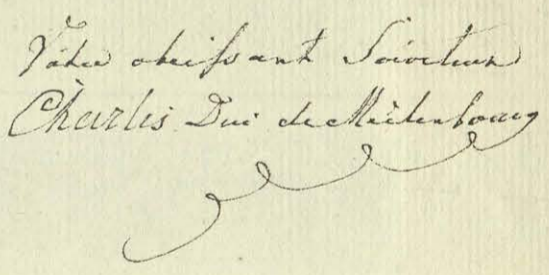 Votre obeissant Serviteur
Charles Duc de Mecklenbourg